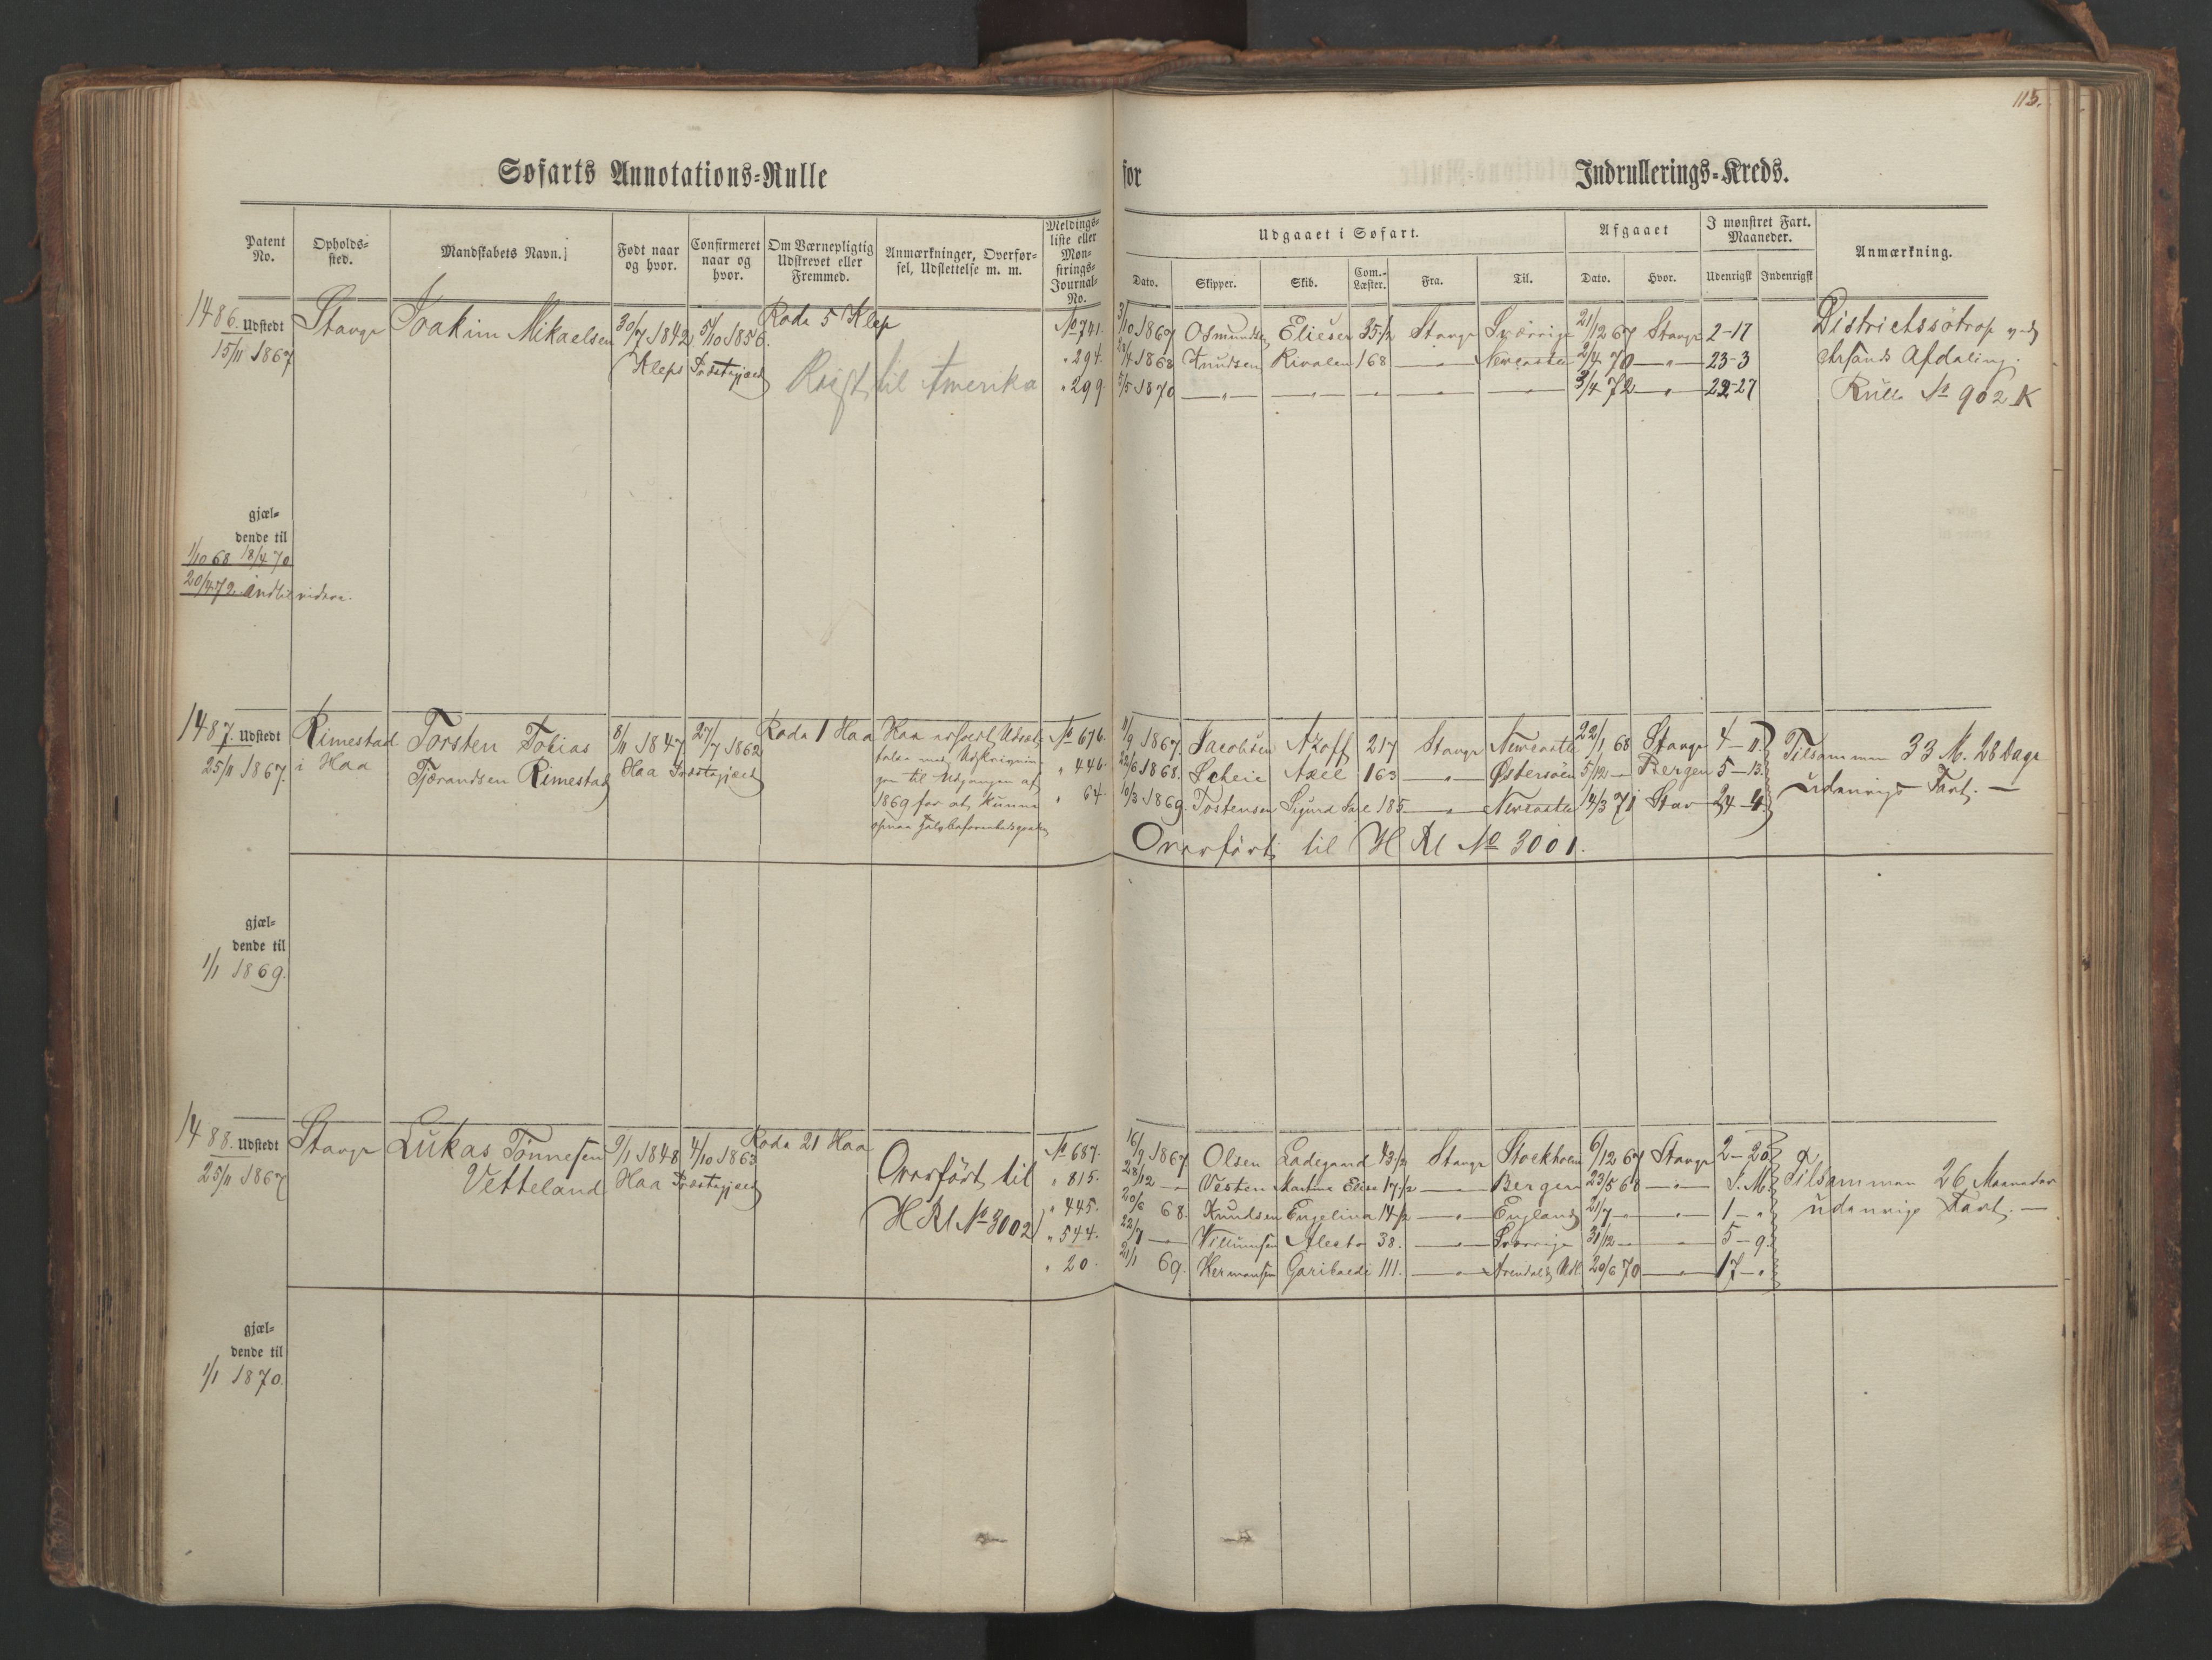 115.
Søfarts Annotations-Rulle for Indrullerings-Kreds.
Patent No. Opholds-sted. Mandskabets Navn. Født naar og hvor. Confirmeret naar og hvor. Om Værnepligtig Udskrevet eller Fremmed. Anmærkninger, Overførsel, Udslettelse m. m. Meldings-liste eller Mønstrings-Journal-No.
Udgaaet i Søfart. Afgaaet I mønstret Fart. Maaneder. Anmærkning.
Dato. Skipper. Skib. Com.-Læster. Fra. Til. Dato. Hvor. Udenrigsk Indenrigsk
1486. Udstedt Stavgr Joakim Mikaelsen 30/7 1842 5/10 1856. Rode 5 Klep No 741. 3/10 1867 Osmundsen Elieser 35 1/2 Stavgr Sverrige 21/12 67 Stavgr 2-17 Districtssötrop
15/11 1867 Klep Præstegjæld Reist til Amerika " 294. 23/4 1868 Knudsen Rivalen 168 — " — Newcastle 2/4 70 — " — 23-3 Afdeling.
" 299 5/5 1870 — " — — " — — " — — " — — " — 3/4 72 — " — 22-27 Rulle No 902 K
gjæl-
dende til
1/10 68 18/4 70
20/4 72. indtil videre.
1487. Udstedt Rimestad Torsten Tobias 8/11 1847 27/7 1862 Rode 1 Haa Har erholdt Udsæt- No 676. 11/9 1867. Jacobsen Azoff 217 Stavgr Newcastle 22/1 68 Stavgr 4-11. Tilsammen 33 M. 28 Dage
25/11 1867. i Haa Tjærandsen Rimestad Haa Præstegjæld telse med Udskrivnin- " 446. 22/6 1868. Scheie Axel 163 — " — Østersöen 5/12 — Bergen 5-13. udenrigs Fart. —
gen til Udgangen af " 64. 10/3 1869. Tostensen Sigurd Jarl 185 — " — Newcastle 14/3 71 Stav 24-4.
1869 for at kunne
Overført til H Rl No 3001.
gjæl-
dende til
1/1 1869.
1488. Udstedt Stavgr Lukas Tönnesen 9/1 1848 4/10 1863 Rode 21 Haa Overført til No 687. 16/9 1867 Olsen Ladegaard 43 1/2 Stavgr Stockholm 6/12 67 Stavgr 2-20 Tilsammen 26 Maaneder
25/11 1867 Vetteland Haa Præstegjæld H Rl No 3002 " 815. 28/12 — Vesten Martine Elise 17 1/2 — " — Bergen 23/5 68 — " — J. M. udenrigs Fart. —
" 445. 20/6 68. Knudsen Engelina 14 1/2 — " — England 21/7 — " 1 — "
" 544. 22/7 — Villumsen Alecto 38. — " — Sverrige 31/12 — " 5-9.
" 20. 21/1 69. Hermansen Garibaldi 111. — " — Arendal & Udl 20/6 70 — " — 17 — "
gjæl-
dende til
1/1 1870.